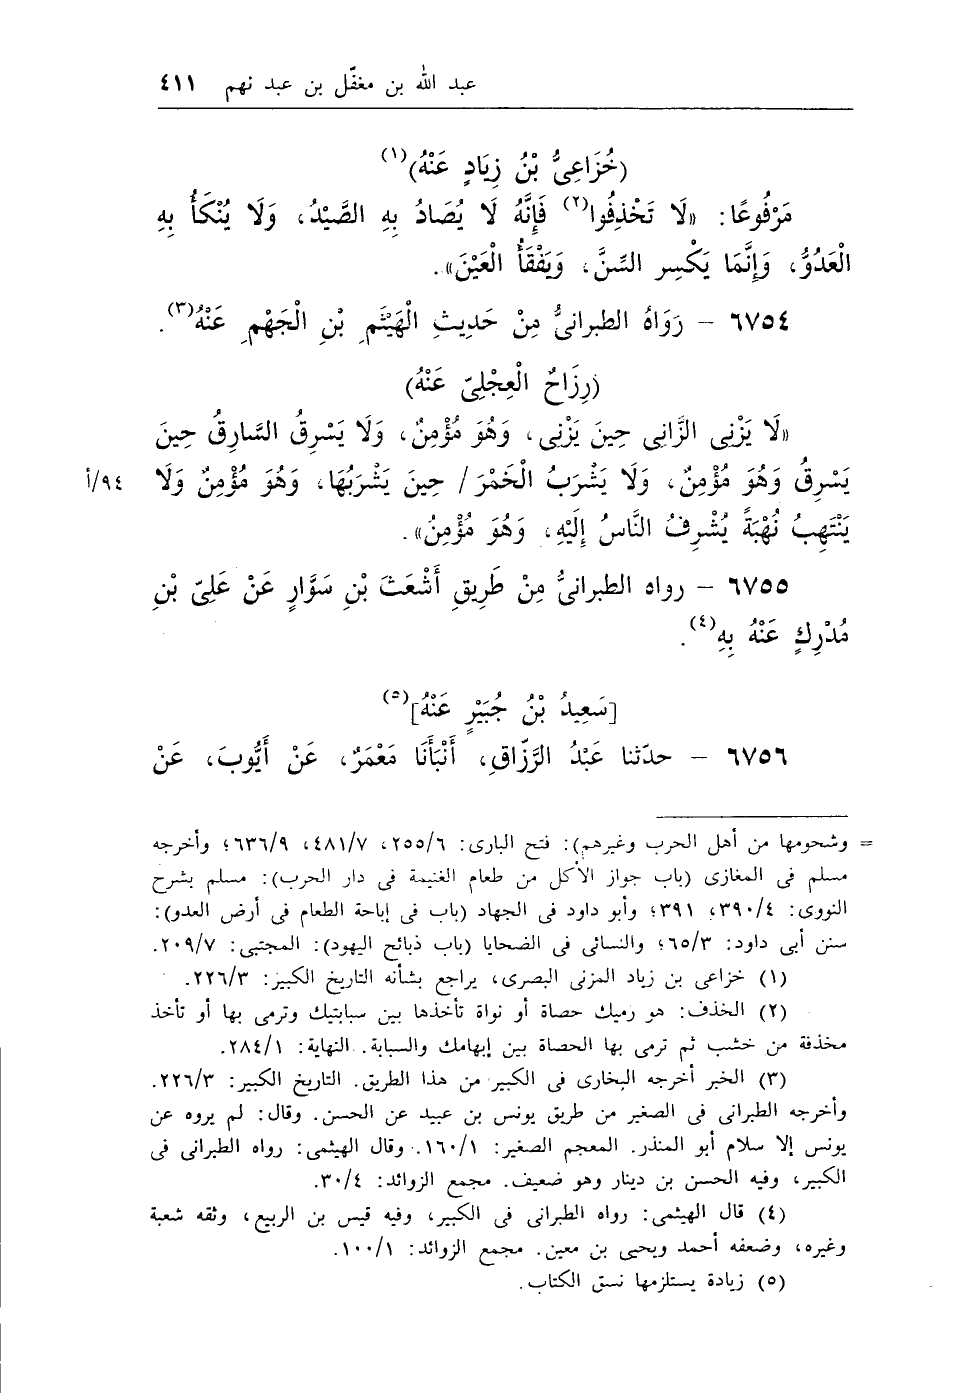 عبد الله بن مغفّل بن عبد نهم ٤١١
(خُزَاعِىُّ بْنُ زِيَادٍ عَنْهُ)(١)
مَرْفُوعًا: «لَا تَخْذِفُوا(٢) فَإِنَّهُ لَا يُصَادُ بِهِ الصَّيْدُ، وَلَا يُنْكَأُ بِهِ
الْعَدُوُّ، وَإِنَّمَا يَكْسِر السِّنَّ، وَيَفْقَأُ الْعَيْنَ».
٦٧٥٤ – رَوَاهُ الطبرانىُّ مِنْ حَدِيثِ الْهَيْثَمِ بْنِ الْجَهْمِ عَنْهُ(٣).
(رِزَاحٌ الْعِجْلِىّ عَنْهُ)
«لَا يَزْنِى الزَّانِى حِينَ يَزْنِى، وَهُوَ مُؤْمِنٌ، وَلَا يَسْرِقُ السَّارِقُ حِينَ
يَسْرِقُ وَهُوَ مُؤْمِنٌ، وَلَا يَشْرَبُ الْخَمْرَ / حِينَ يَشْرَبُهَا، وَهُوَ مُؤْمِنٌ وَلَا ٩٤/أ
يَنْتَهِبُ نُهْبَةً يُشْرِفُ النَّاسُ إِلَيْهِ، وَهُوَ مُؤْمِنُ».
٦٧٥٥ – رواه الطبرانىُّ مِنْ طَرِيقِ أَشْعَثَ بْنِ سَوَّارٍ عَنْ عَلِىّ بْنِ
مُدْرِكٍ عَنْهُ بِهِ(٤).
[سَعِيدُ بْنُ جُبَيْرٍ عَنْهُ](٥)
٦٧٥٦ – حدّثنا عَبْدُ الرَّزَّاقِ، أَنْبَأَنَا مَعْمَرٌ، عَنْ أَيُّوبَ، عَنْ
= وشحومها من أهل الحرب وغيرهم): فتح البارى: ٢٥٥/٦، ٤٨١/٧، ٦٣٦/٩؛ وأخرجه
مسلم فى المغازى (باب جواز الأكل من طعام الغنيمة فى دار الحرب): مسلم بشرح
النووى: ٣٩٠/٤، ٣٩١؛ وأبو داود فى الجهاد (باب فى إباحة الطعام فى أرض العدو):
سنن أبى داود: ٦٥/٣؛ والنسائى فى الضحايا (باب ذبائح اليهود): المجتبى: ٢٠٩/٧.
(١) خزاعى بن زياد المزنى البصرى، يراجع بشأنه التاريخ الكبير: ٢٢٦/٣.
(٢) الخذف: هو رميك حصاة أو نواة تأخذها بين سبابتيك وترمى بها أو تأخذ
مخذفة من خشب ثم ترمى بها الحصاة بين إبهامك والسبابة. النهاية: ٢٨٤/١.
(٣) الخبر أخرجه البخارى فى الكبير من هذا الطريق. التاريخ الكبير: ٢٢٦/٣.
وأخرجه الطبرانى فى الصغير من طريق يونس بن عبيد عن الحسن. وقال: لم يروه عن
يونس إلا سلام أبو المنذر. المعجم الصغير: ١٦٠/١. وقال الهيثمى: رواه الطبرانى فى
الكبير، وفيه الحسن بن دينار وهو ضعيف. مجمع الزوائد: ٣٠/٤.
(٤) قال الهيثمى: رواه الطبرانى فى الكبير، وفيه قيس بن الربيع، وثقه شعبة
وغيره، وضعفه أحمد ويحيى بن معين. مجمع الزوائد: ١٠٠/١.
(٥) زيادة يستلزمها نسق الكتاب.